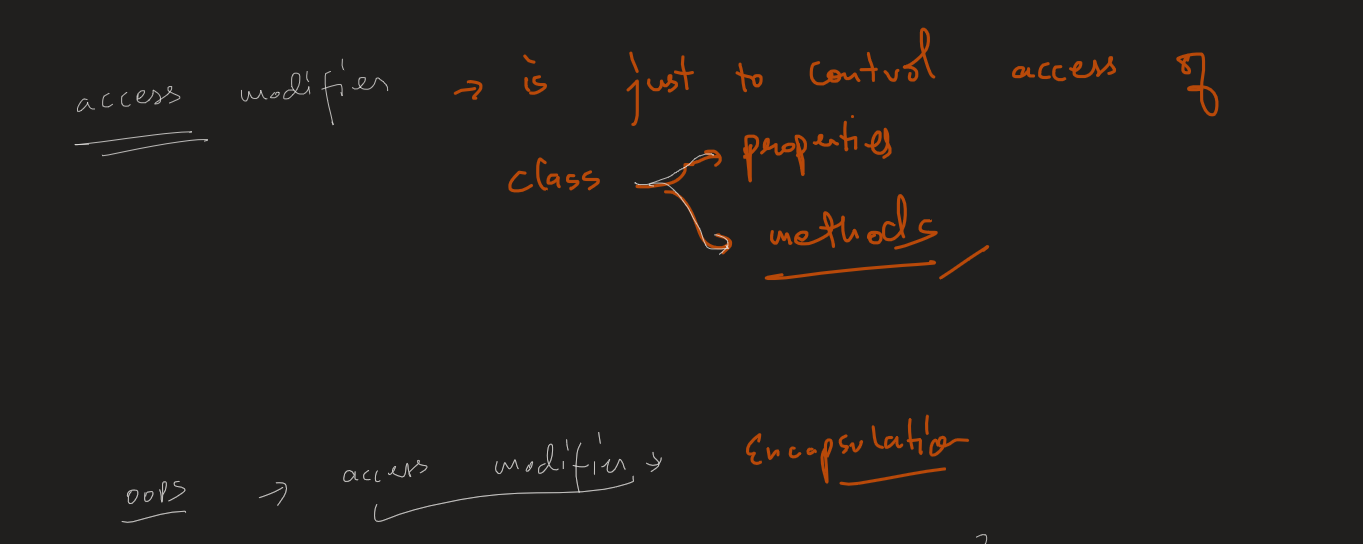 access modifier → is just to control access of
class → properties
→ methods
oops → access modifier → Encapsulation